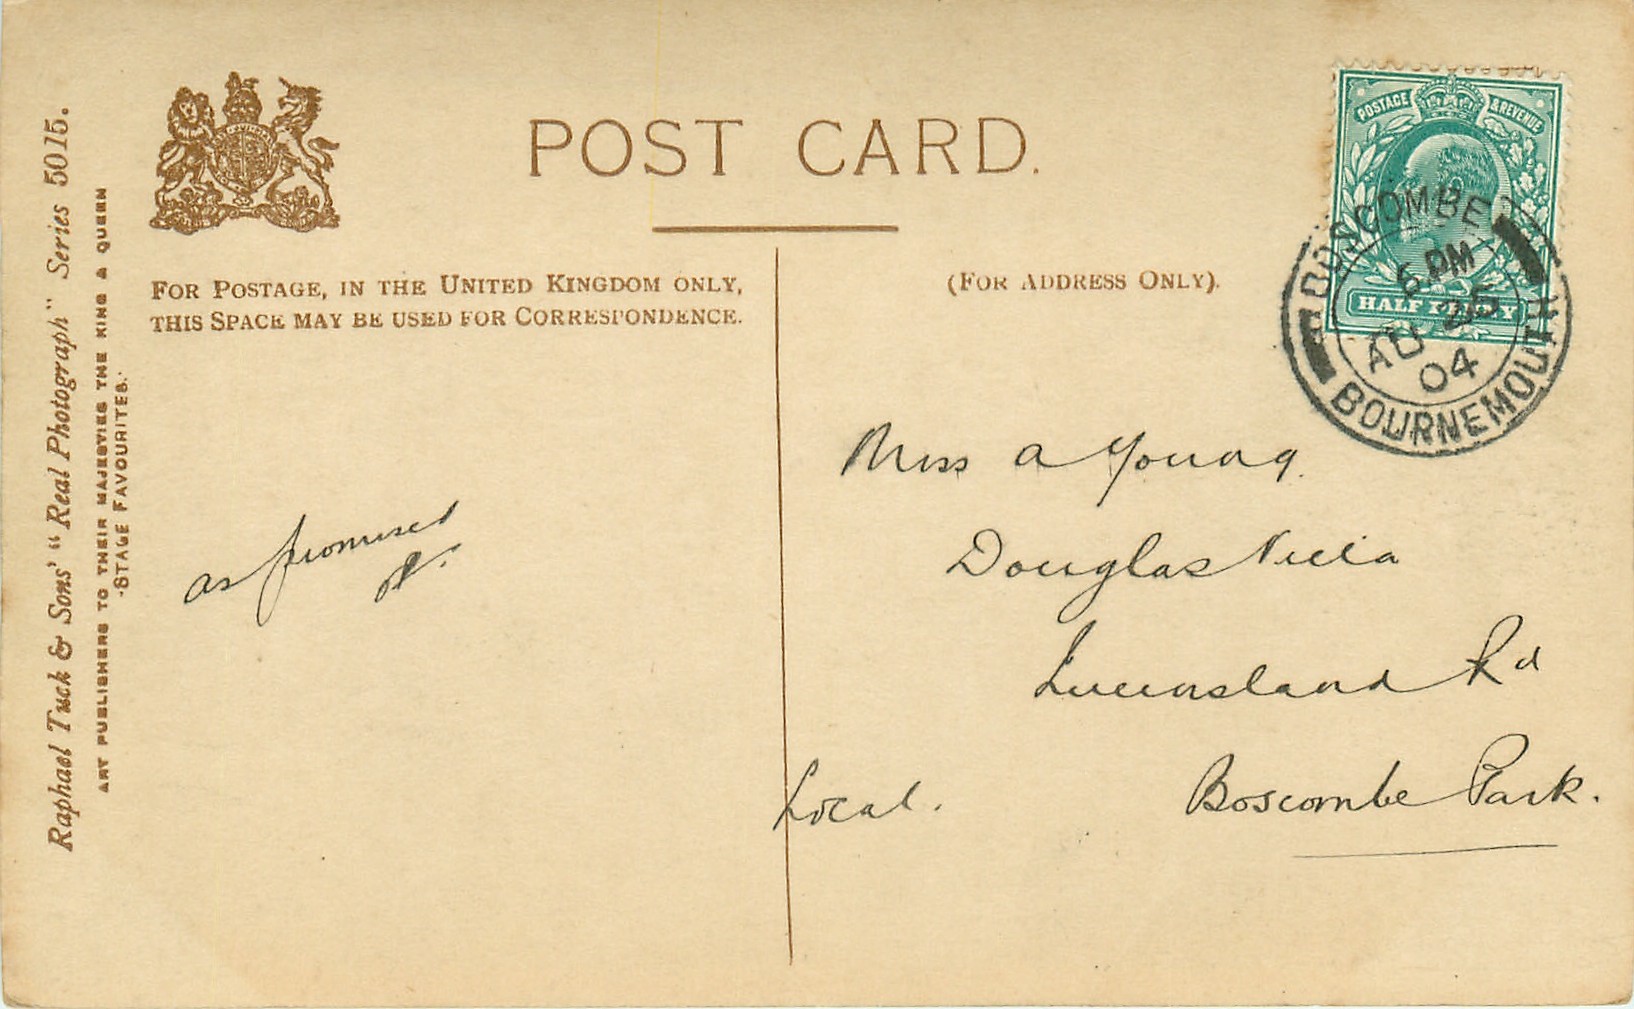 POST CARD.
Raphael Tuck & Sons' "Real Photograph" Series 5015.
ART PUBLISHERS TO THEIR MAJESTIES THE KING & QUEEN
-STAGE FAVOURITES.
FOR POSTAGE, IN THE UNITED KINGDOM ONLY,
THIS SPACE MAY BE USED FOR CORRESPONDENCE.
(FOR ADDRESS ONLY).
POSTAGE & REVENUE
HALF PENNY
BOSCOMBE
6 PM
AU 25
04
BOURNEMOUTH
as promised
Miss A Young.
Douglas Villa
Queensland Rd
Boscombe Park.
Local.